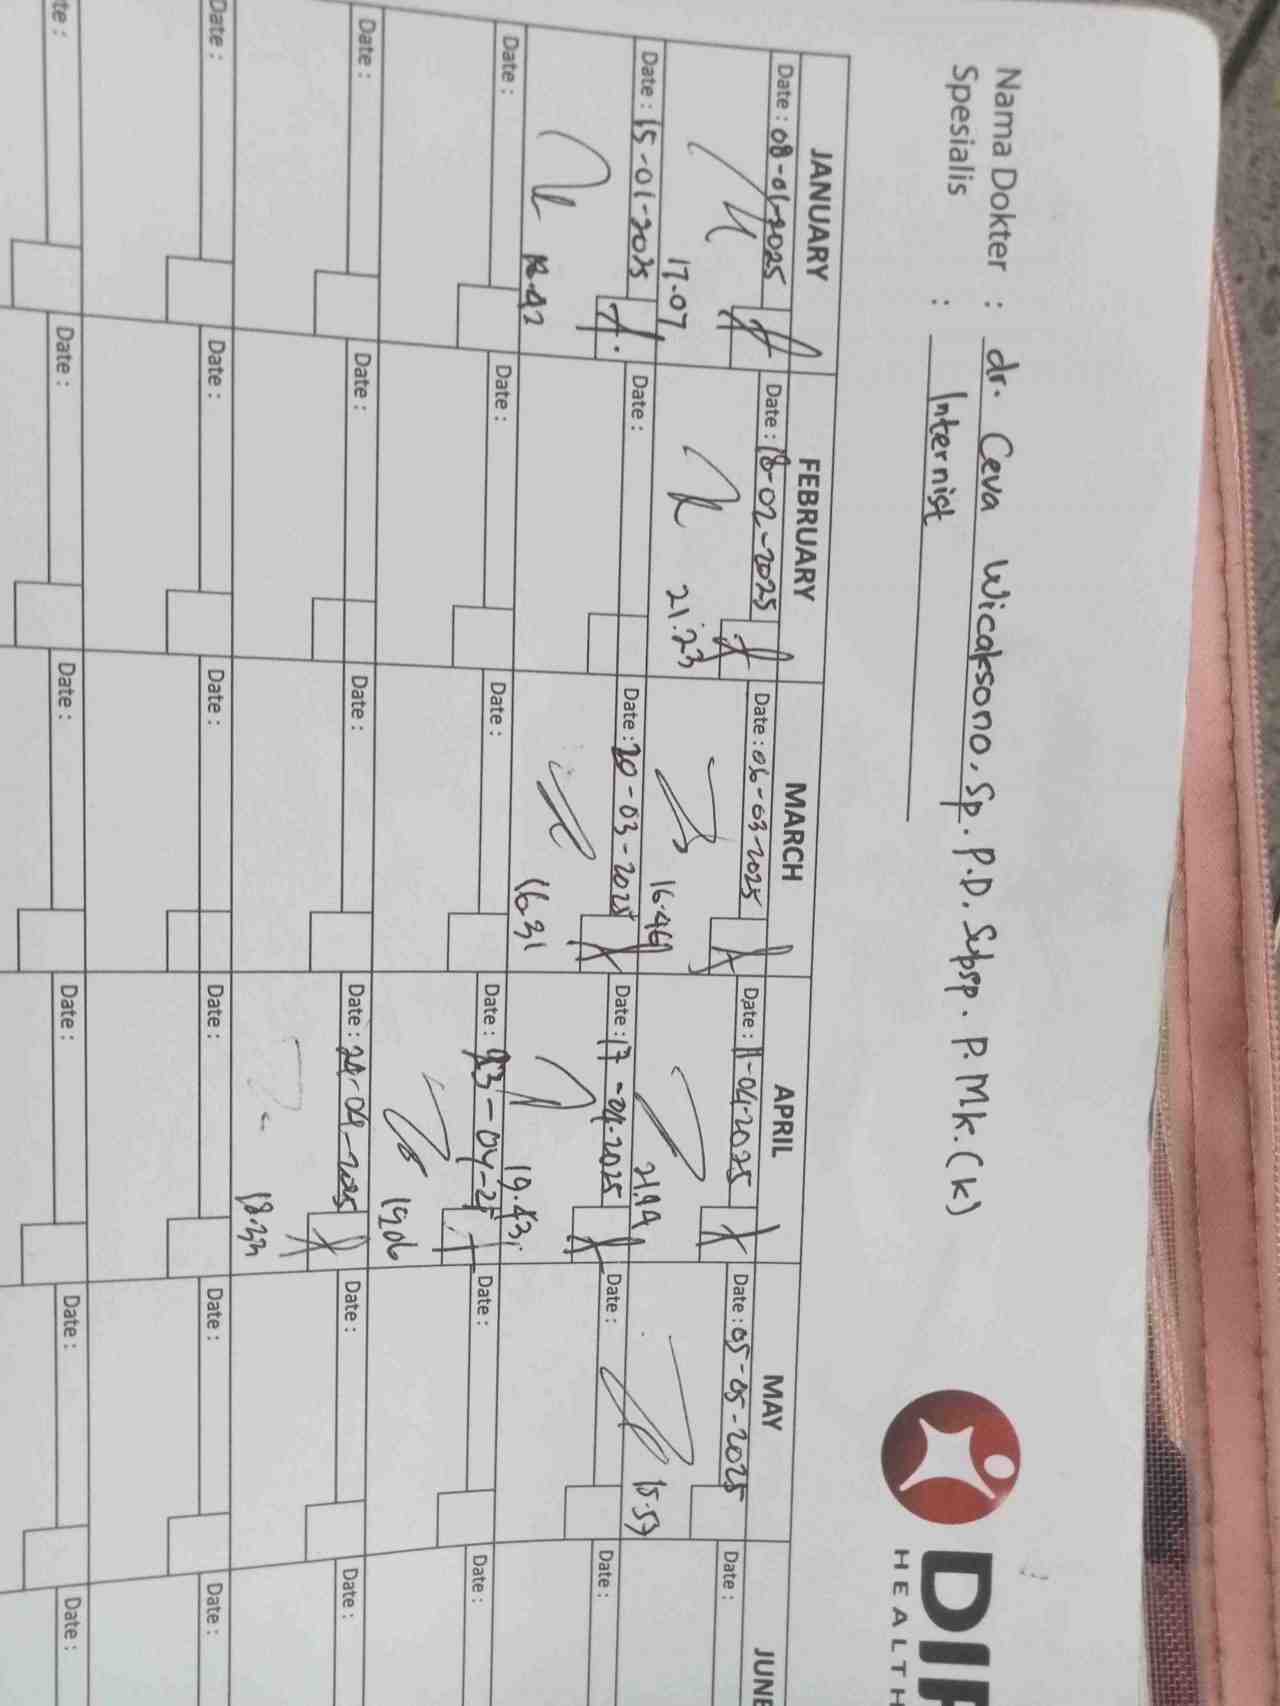 Nama Dokter : dr. Ceva Wicaksono, Sp. P.D. Subsp. P.Mk.(k)
Spesialis : Internist
DIP
HEALTH
JANUARY FEBRUARY MARCH APRIL MAY JUNE
Date : 08-01-2025 Date : 18-02-2025 Date : 06-03-2025 Date : 11-04-2025 Date : 05-05-2025 Date :
17.07 21.23 16.46 21.44 15.57
Date : 15-01-2025 Date : Date : 20-03-2025 Date : 17-04-2025 Date : Date :
16.31 19.43
Date : Date : Date : Date : 23-04-25 Date : Date :
1906
Date : Date : Date : Date : 24-04-2025 Date : Date :
18.33
Date : Date : Date : Date : Date : Date :
te : Date : Date : Date : Date : Date :